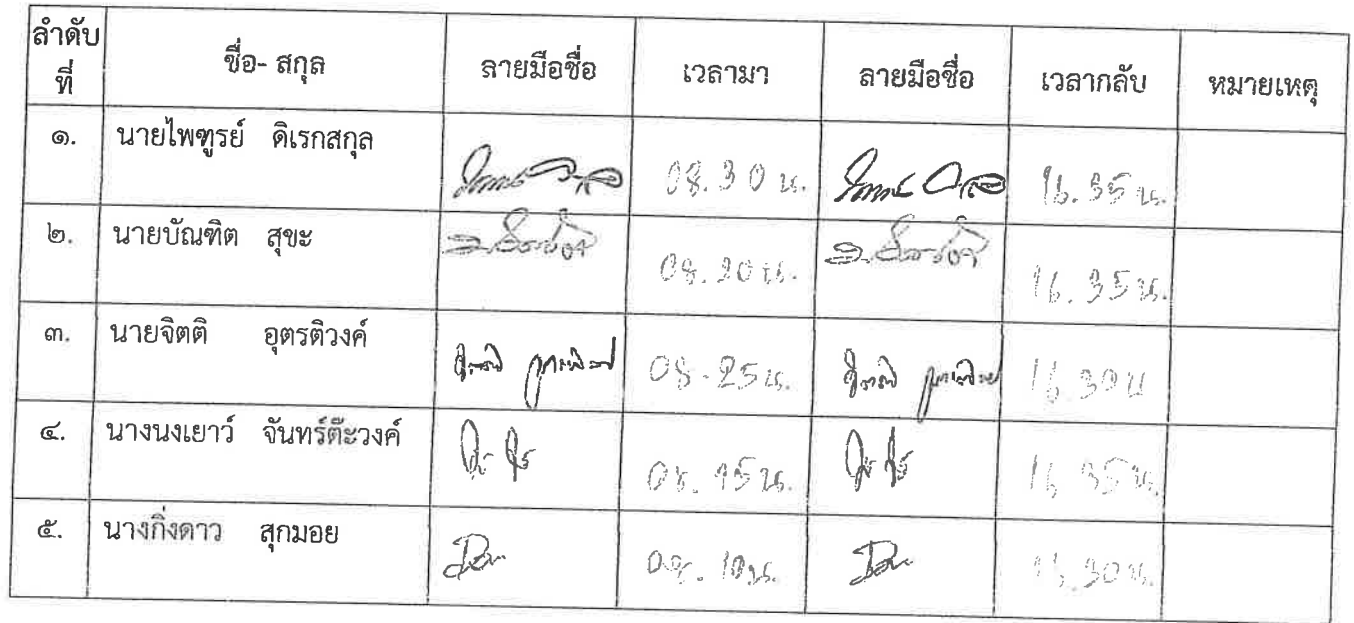 ลำดับที่ ชื่อ- สกุล ลายมือชื่อ เวลามา ลายมือชื่อ เวลากลับ หมายเหตุ
๑. นายไพฑูรย์ ดิเรกสกุล 08.30 น. 16.35 น.
๒. นายบัณฑิต สุขะ 16.35 น.
๓. นายจิตติ อุตรติวงค์ 08.25 น. 16.30 น
๔. นางนงเยาว์ จันทร์ต๊ะวงค์ 08.15 น. 16.35 น.
๕. นางกิ่งดาว สุกมอย 08.10 น.